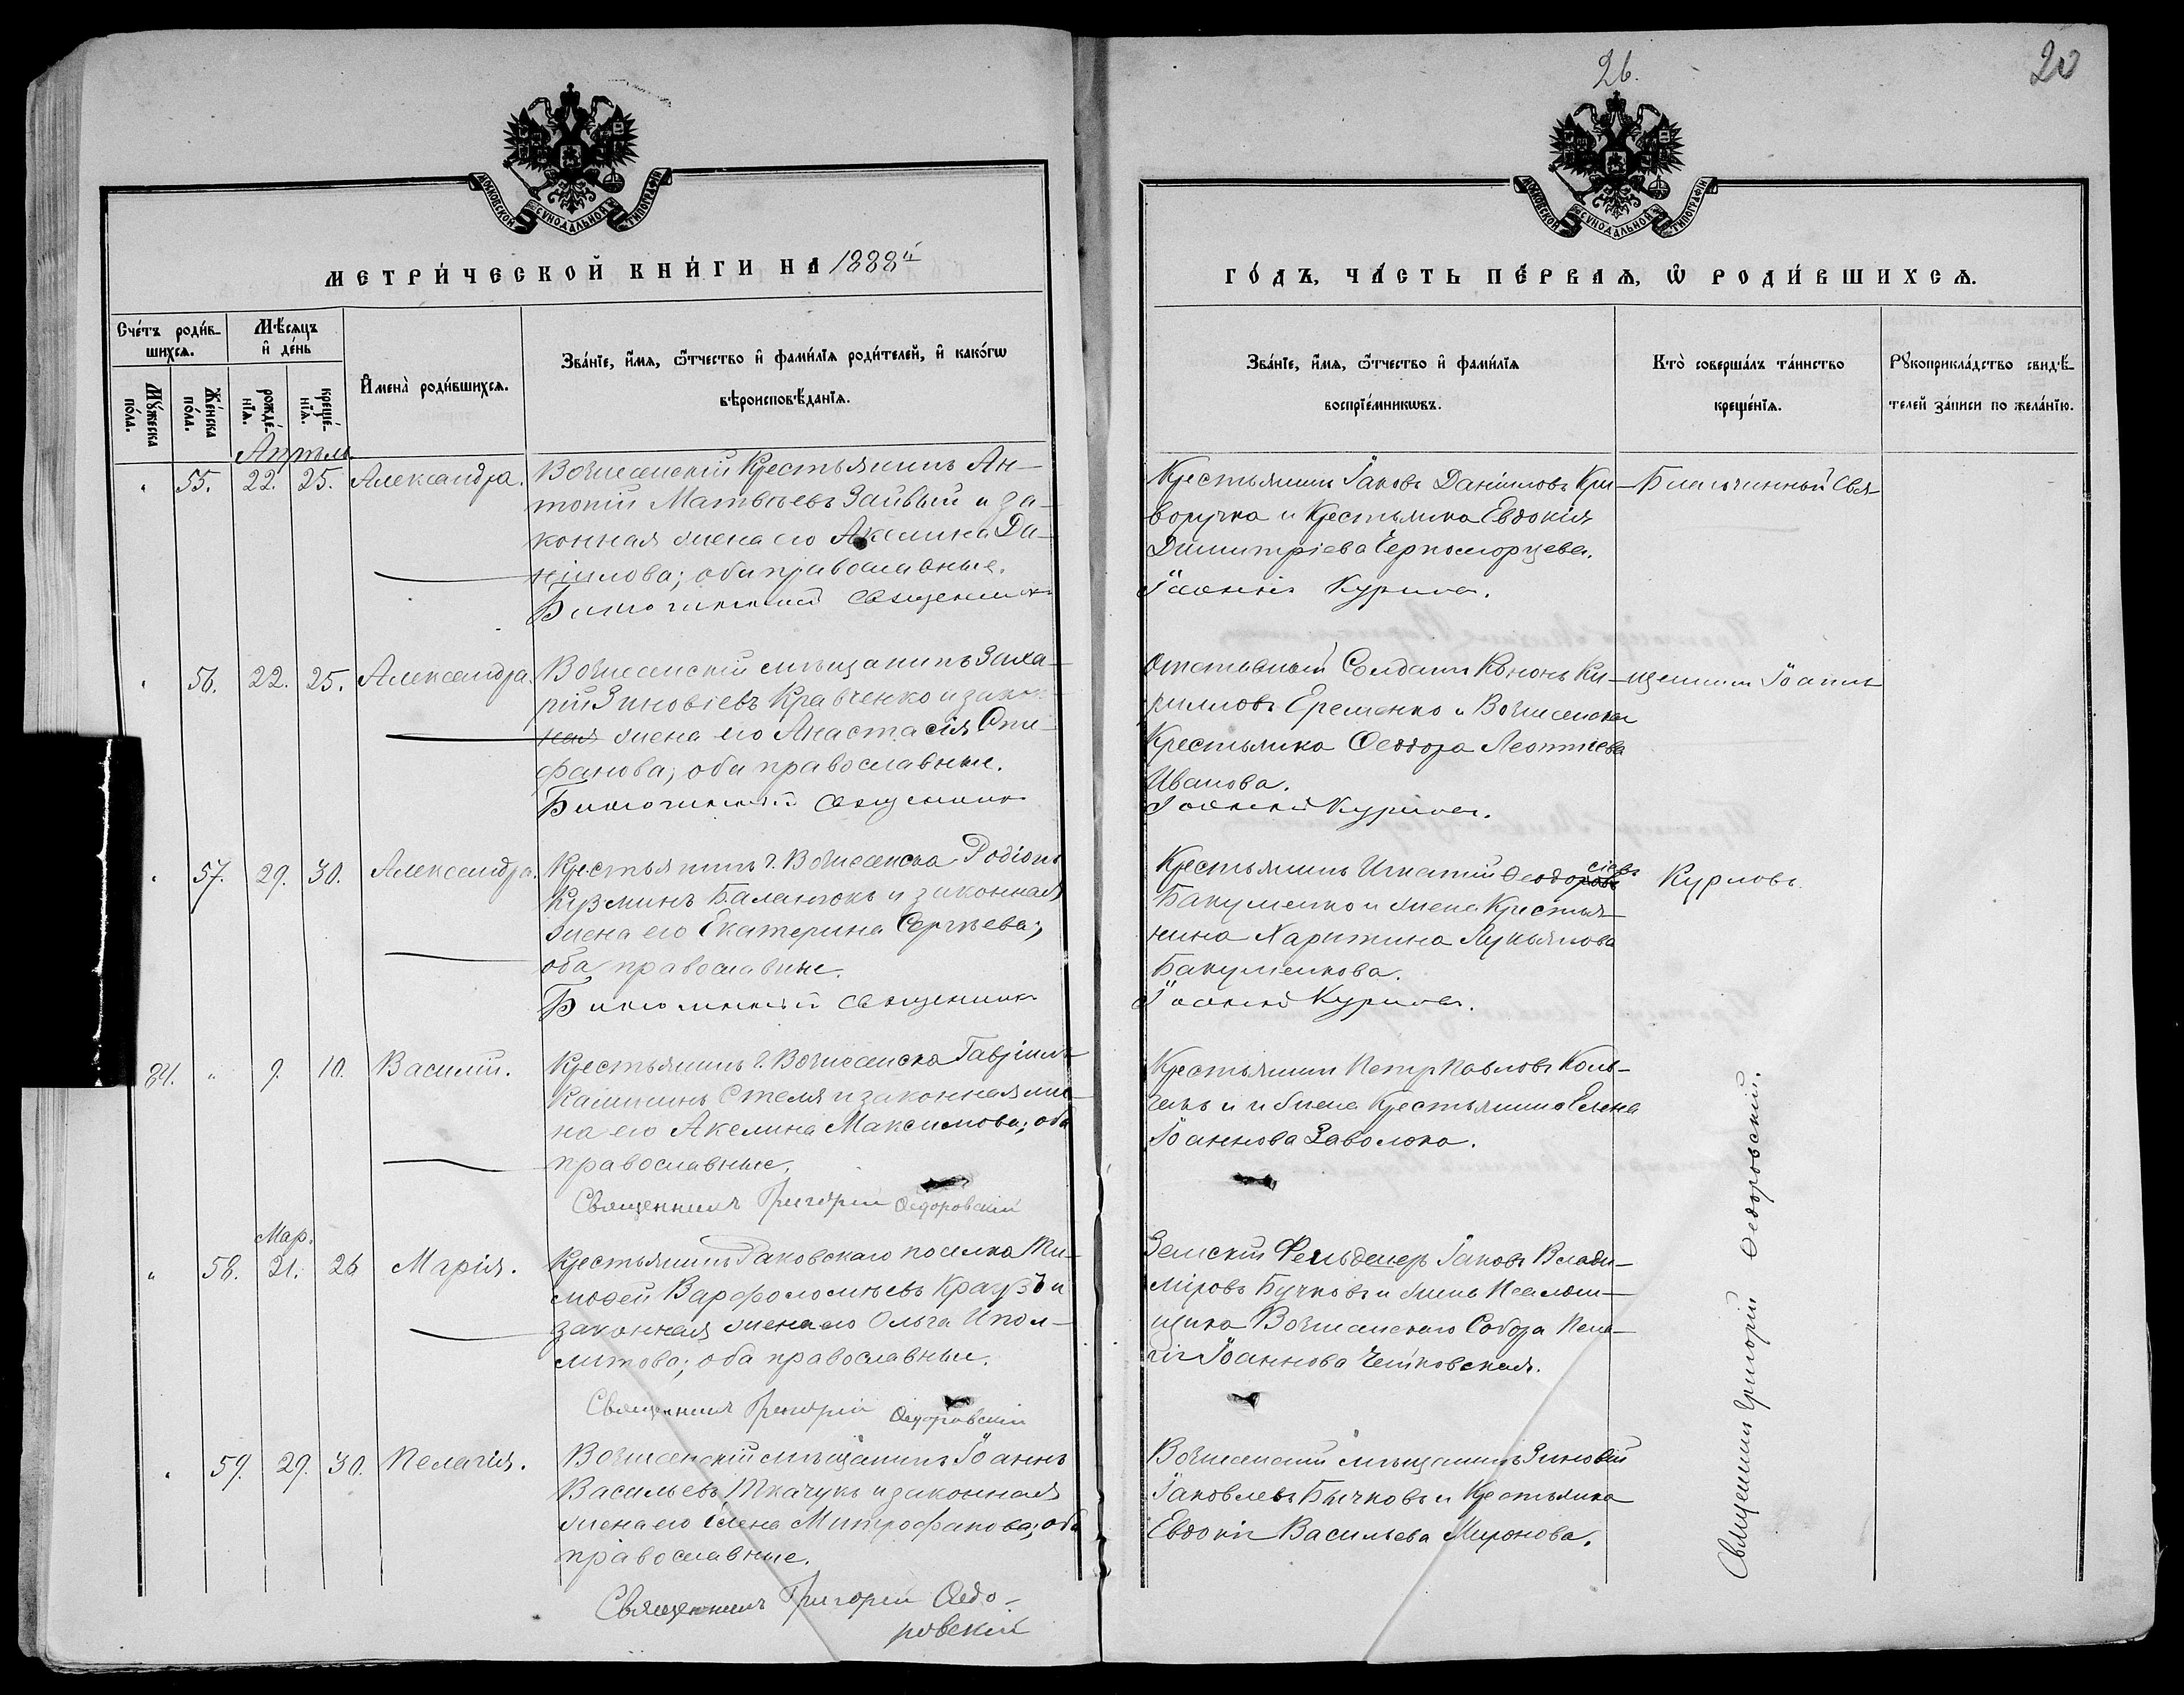 26.
20
МОСКОВСКОЙ СѴНОДАЛЬНОЙ ТИПОГРАФІИ
МОСКОВСКОЙ СѴНОДАЛЬНОЙ ТИПОГРАФІИ
МЕТРИ́ЧЕСКОЙ КНИ́ГИ НА 1888й
ГО́ДЪ, ЧА́СТЬ ПЕ́РВАѦ, Ѡ РОДИ́ВШИХСѦ.
Сче́тъ роди́в-
шихсѧ.
Мꙋ́жеска
по́ла.
Же́нска
по́ла.
Мѣ́сѧцъ
и҆ де́нь
рожде́-
нїѧ.
креще́-
нїѧ.
И҆мена̀ роди́вшихсѧ.
Зва́нїе, и҆́мѧ, ѻ҆́тчество и҆ фами́лїѧ роди́телей, и҆ како́гѡ
вѣроисповѣ́данїѧ.
Зва́нїе, и҆́мѧ, ѻ҆́тчество и҆ фами́лїѧ
воспрїе́мникѡвъ.
Кто̀ соверша́лъ та́инство
креще́нїѧ.
Рꙋкоприкла́дство свидѣ́-
телей за́писи по жела́нїю.
Апрѣль
" 55. 22. 25. Александра. Вознесенскій Крестьянинъ Ан-
тоній Матвѣевъ Заивый и за-
конная жена его Акелина Да-
ніилова; оба православные.
Благочинный Священникъ
Крестьянинъ Іаковъ Даніиловъ Кри-
воручка и Крестьянка Евдокія
Димитріева Черноморцева.
Іоаннъ Курлов.
Благочинный Свя-
" 56. 22. 25. Александра. Вознесенскій мѣщанинъ Заха-
рій Зиновіевъ Кравченко и закон-
ная жена его Анастасія Сте-
фанова; оба православные.
Благочинный Священникъ
Отставный Солдатъ Кононъ Ки-
рилловъ Еременко и Вознесенская
Крестьянка Ѳеодора Леонтіева
Иванова.
Іоаннъ Курлов.
щенникъ Іоаннъ
" 57. 29. 30. Александра. Крестьянинъ г. Вознесенска Родіонъ
Кузминъ Баланюкъ и законная
жена его Екатерина Сергѣева;
оба православные.
Благочинный Священникъ
Крестьянинъ Игнатій Ѳеодосіевъ
Бакуменко и жена Крестья-
нина Харитина Лукьянова
Бакуменкова.
Іоаннъ Курлов.
Курловъ.
84. " 9. 10. Василій. Крестьянинъ г. Вознесенска Гавріилъ
Стеля и законная же-
на его Акелина Максимова; оба
православные.
Священникъ Григорій Ѳедоровскій
Крестьянинъ Петръ Павловъ
и жена Крестьянина Елена
Іоаннова Заволока.
Мар.
" 58. 21. 26 Марія. Крестьянинъ Раковскаго поселка Ти-
моѳей Варфоломѣевъ Краузъ и
законная жена его Ольга Ипол-
литова; оба православные.
Священникъ Григорій Ѳедоровскій
Земскій Фельдшеръ Іаковъ Влади-
міровъ Бучковъ и жена Псаломщ-
щика Вознесенскаго Собора Пела-
гія Іоаннова
" 59. 29. 30. Пелагія. Вознесенскій мѣщанинъ Іоаннъ
Васильевъ Ткачукъ и законная
жена его Елена Митрофанова; оба
православные.
Священникъ Григорій Ѳедо-
ровскій
Вознесенскій мѣщанинъ Зиновій
Іаковлевъ Бычковъ и Крестьянка
Евдокія Васильева Миронова.
Священникъ Григорій Ѳедоровскій.